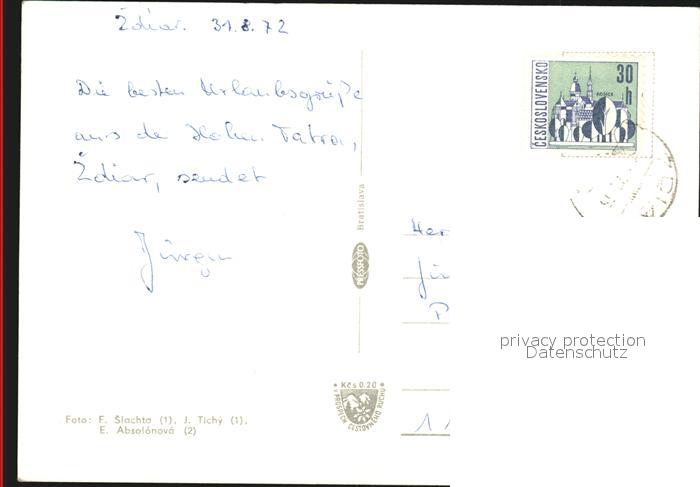 Ždiar. 31.8.72
Die besten Urlaubsgrüße
aus de Hohen Tatra,
Ždiar, sendet
Jürgen
ČESKOSLOVENSKO
30 h
KOŠICE
Bratislava
PRESSFOTO
Her
Jü
P
privacy protection
Datenschutz
Kčs 0.20
V PROSPECH CESTOVNÉHO RUCHU
11
Foto: F. Šlachta (1), J. Tichý (1),
E. Absolónová (2)